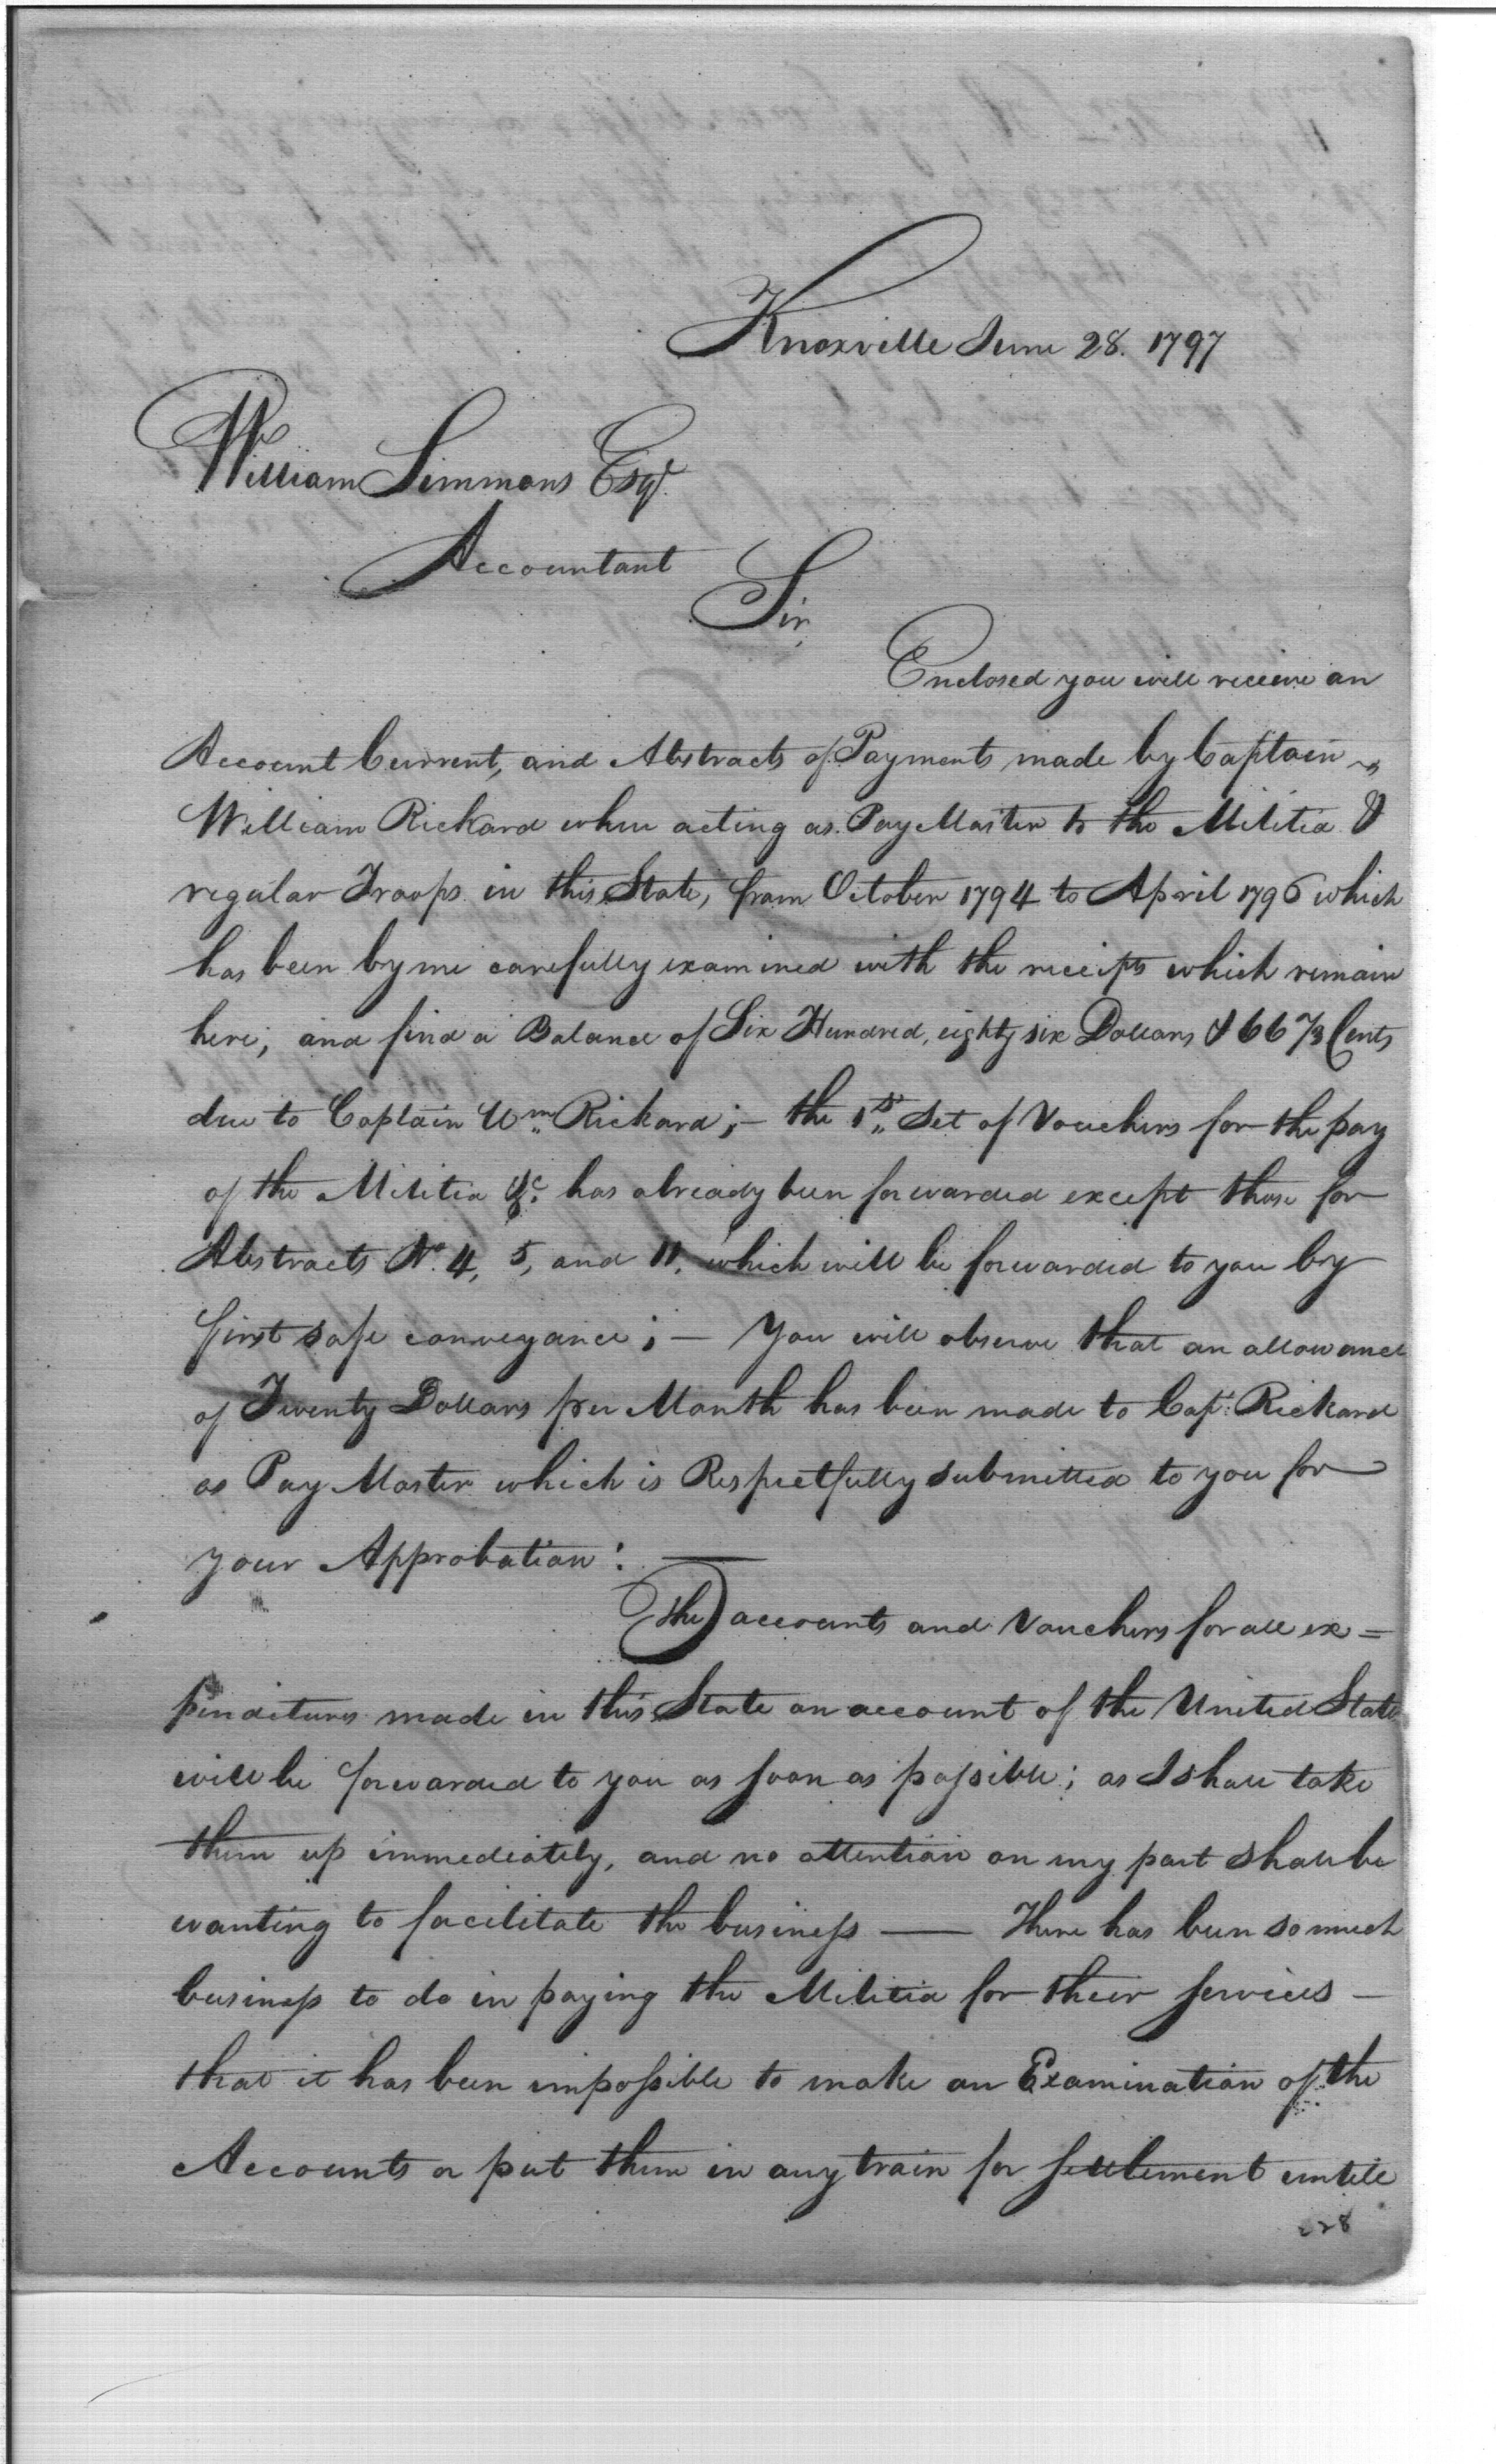 Knoxville June 28. 1797
William Simmons Esqr.
Accountant
Sir,
Enclosed you will receive an
Account Current, and Abstracts of Payments made by Captain
William Rickard when acting as Pay Master to the Militia &
regular Troops in this State, from October 1794 to April 1796 which
has been by me carefully examined with the receipts which remain
here; and find a Balance of Six Hundred, eighty six Dollars & 66 7/8 Cents
due to Captain Wm. Rickard; – the 1st. Set of Vouchers for the pay
of the Militia &c. has already been forwarded except those for
Abstracts No. 4, 5, and 11, which will be forwarded to you by
first safe conveyance; – You will observe that an allowance
of Twenty Dollars per Month has been made to Capt. Rickard
as Pay Master which is Respectfully submitted to you for
your Approbation: —
The accounts and Vouchers for all ex=
penditures made in this State on account of the United States
will be forwarded to you as soon as possible; as I shall take
them up immediately, and no attention on my part shall be
wanting to facilitate the business — There has been so much
business to do in paying the Militia for their services –
that it has been impossible to make an Examination of the
Accounts or put them in any train for settlement untill
228